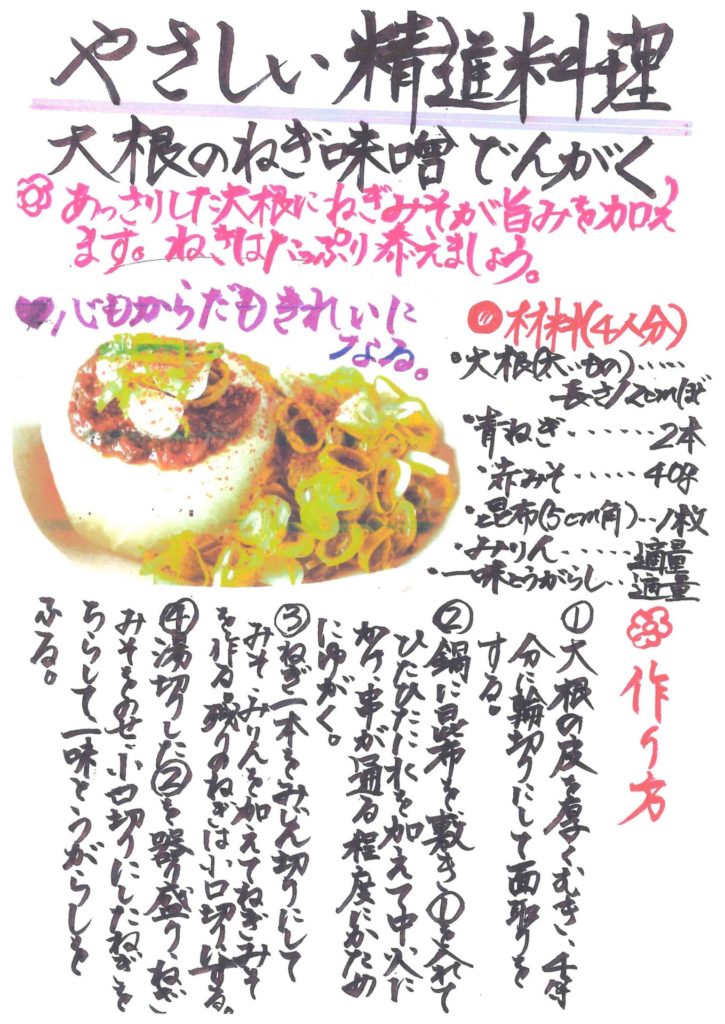 やさしい精進料理
大根のねぎ味噌でんがく
あっさりした大根にねぎみそが旨みを加え
ます。ねぎはたっぷり添えましょう。
心もからだもきれいに
なる。
材料(4人分)
・大根(太いもの)……
長さ12cmほど
・青ねぎ……2本
・赤みそ……40g
・昆布(5cm角)…1枚
・みりん……適量
・一味とうがらし…適量
作り方
①大根の皮を厚くむき、4等
分に輪切りにして面取りを
する。
②鍋に昆布を敷き①を入れて
ひたひたに水を加えて中火に
かけ、串が通る程度にかため
にゆがく。
③ねぎ一本をみじん切りにして
みそ、みりんを加えてねぎみそ
を作る。残りのねぎは小口切りにする。
④湯切りした②を器に盛り、ねぎ
みそをのせ、小口切りにしたねぎを
ちらして一味とうがらしを
ふる。